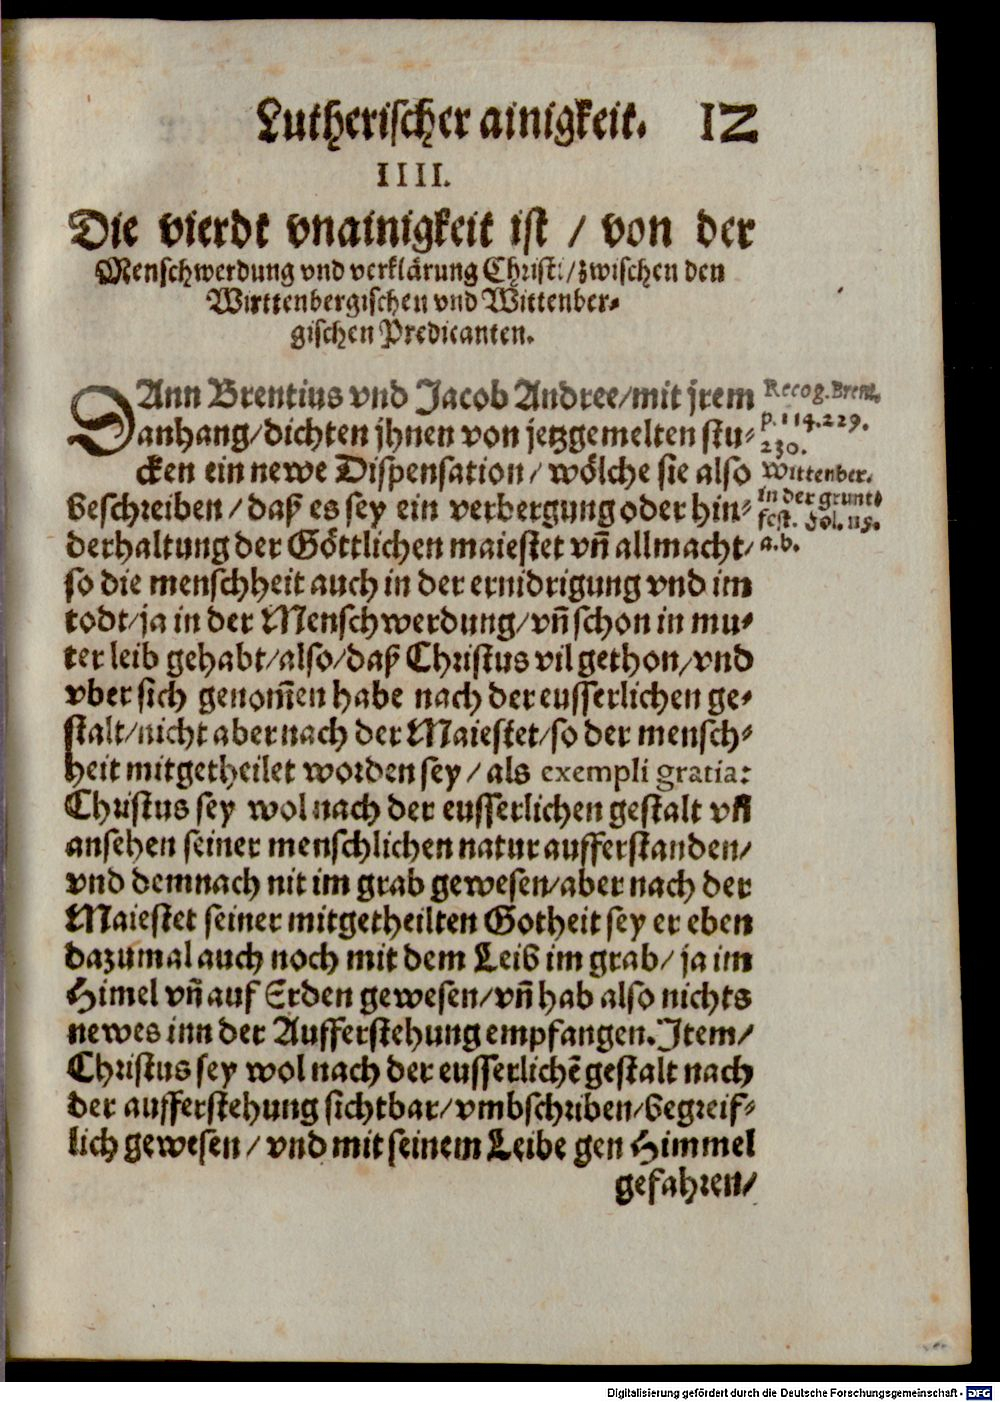 Lutherischer ainigkeit. 12
IIII.
Die vierdt vnainigkeit ist / von der
Menschwerdung vnd verklärung Christi / zwischen den
Wirttenbergischen vnd Wittenber-
gischen Predicanten.
DAnn Brentius vnd Jacob Andree/mit jrem
anhang/dichten jhnen von jetzgemelten stu-
cken ein newe Dispensation / wölche sie also
beschreiben / daß es sey ein verbergung oder hin-
derhaltung der Göttlichen maiestet vñ allmacht/
so die menschheit auch in der ernidrigung vnd im
todt/ja in der Menschwerdung/vñ schon in mu-
ter leib gehabt/also/daß Christus vil gethon/vnd
vber sich genom̃en habe nach der eusserlichen ge-
stalt/nicht aber nach der Maiestet/so der mensch-
heit mitgetheilet worden sey / als exempli gratia:
Christus sey wol nach der eusserlichen gestalt vñ
ansehen seiner menschlichen natur aufferstanden/
vnd demnach nit im grab gewesen/aber nach der
Maiestet seiner mitgetheilten Gotheit sey er eben
dazumal auch noch mit dem Leib im grab/ ja im
Himel vñ auf Erden gewesen/vñ hab also nichts
newes inn der Aufferstehung empfangen. Jtem/
Christus sey wol nach der eusserlichẽ gestalt nach
der aufferstehung sichtbar/vmbschriben/begreif-
lich gewesen / vnd mit seinem Leibe gen Himmel
gefahren/
Recog. Brent.
p. 114. 229.
230.
Wittenber.
in der grunt-
fest. Fol. 115.
a.b.
Digitalisierung gefördert durch die Deutsche Forschungsgemeinschaft - DFG